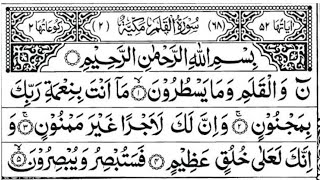 اٰیَاتُهَا ٥٢ (٦٨) سُوْرَةُ الْقَلَمِ مَكِّيَّةٌ (٢) رُكُوْعَاتُهَا ٢
بِسْمِ اللّٰهِ الرَّحْمٰنِ الرَّحِيْمِ
نٓ وَالْقَلَمِ وَمَا يَسْطُرُوْنَ ۝١ مَاۤ اَنْتَ بِنِعْمَةِ رَبِّكَ
بِمَجْنُوْنٍ ۝٢ وَاِنَّ لَكَ لَاَجْرًا غَيْرَ مَمْنُوْنٍ ۝٣ وَ
اِنَّكَ لَعَلٰى خُلُقٍ عَظِيْمٍ ۝٤ فَسَتُبْصِرُ وَيُبْصِرُوْنَ ۝٥